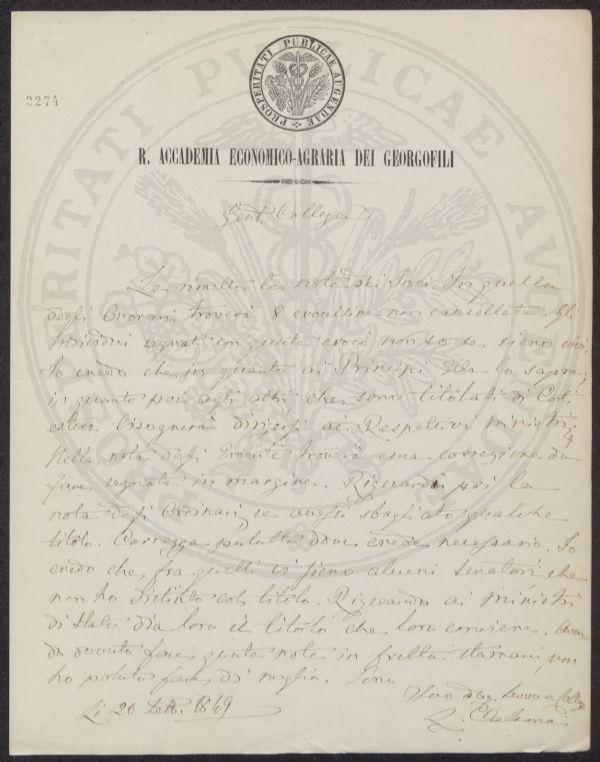 2274
PROSPERITATI PUBLICAE AUGENDAE
R. ACCADEMIA ECONOMICO-AGRARIA DEI GEORGOFILI
Collega
Le rimetto la nota dei Soci. In quella
degli Onorari troverà 8 crocelline non cancellate. Gli
individui segnati con queste croci non so se sieno vivi.
Io credo che in quanto ai Principi Ella lo saprà,
in quanto poi agli altri che sono titolati di Corti
estere bisognerà dirigersi ai Respettivi Ministri.
Nella nota degli Emeriti troverà una correzione da
fare segnata in margine. Riguardo poi la
nota degli Ordinari se avessi sbagliato qualche
titolo. Corregga pertutto dove crede necessario. Io
credo che fra quelli vi sieno alcuni Senatori che
non ho distinto col titolo. Riguardo ai Ministri
di Stato dia loro il titolo che loro conviene. Aven
do dovuto fare queste note in fretta non
ho potuto fare di meglio. Sono
Suo Servo e Collega
Li 20 1869